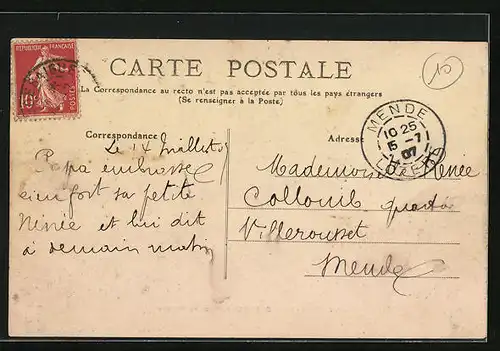 REPUBLIQUE FRANÇAISE
10c
POSTES
CARTE POSTALE
10
La Correspondance au recto n'est pas acceptée par tous les pays étrangers
(Se renseigner à la Poste)
MENDE
10 25
15 - 7
07
LOZERE
Correspondance
Adresse
Le 14 Juillet 07
Papa embrasse
bien fort sa petite
Nénée et lui dit
à demain matin
Mademoiselle Renée
Collomb
Villerousset
Mende